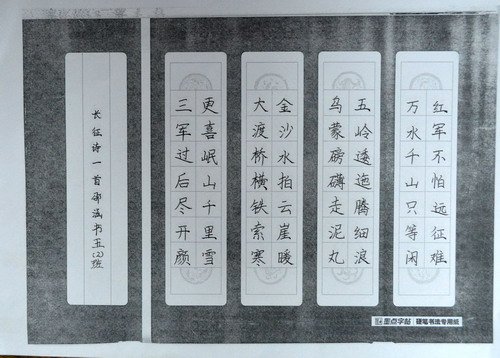 红军不怕远征难
万水千山只等闲
五岭逶迤腾细浪
乌蒙磅礴走泥丸
金沙水拍云崖暖
大渡桥横铁索寒
更喜岷山千里雪
三军过后尽开颜
长征诗一首邵涵书五(2)班
墨点字帖 硬笔书法专用纸